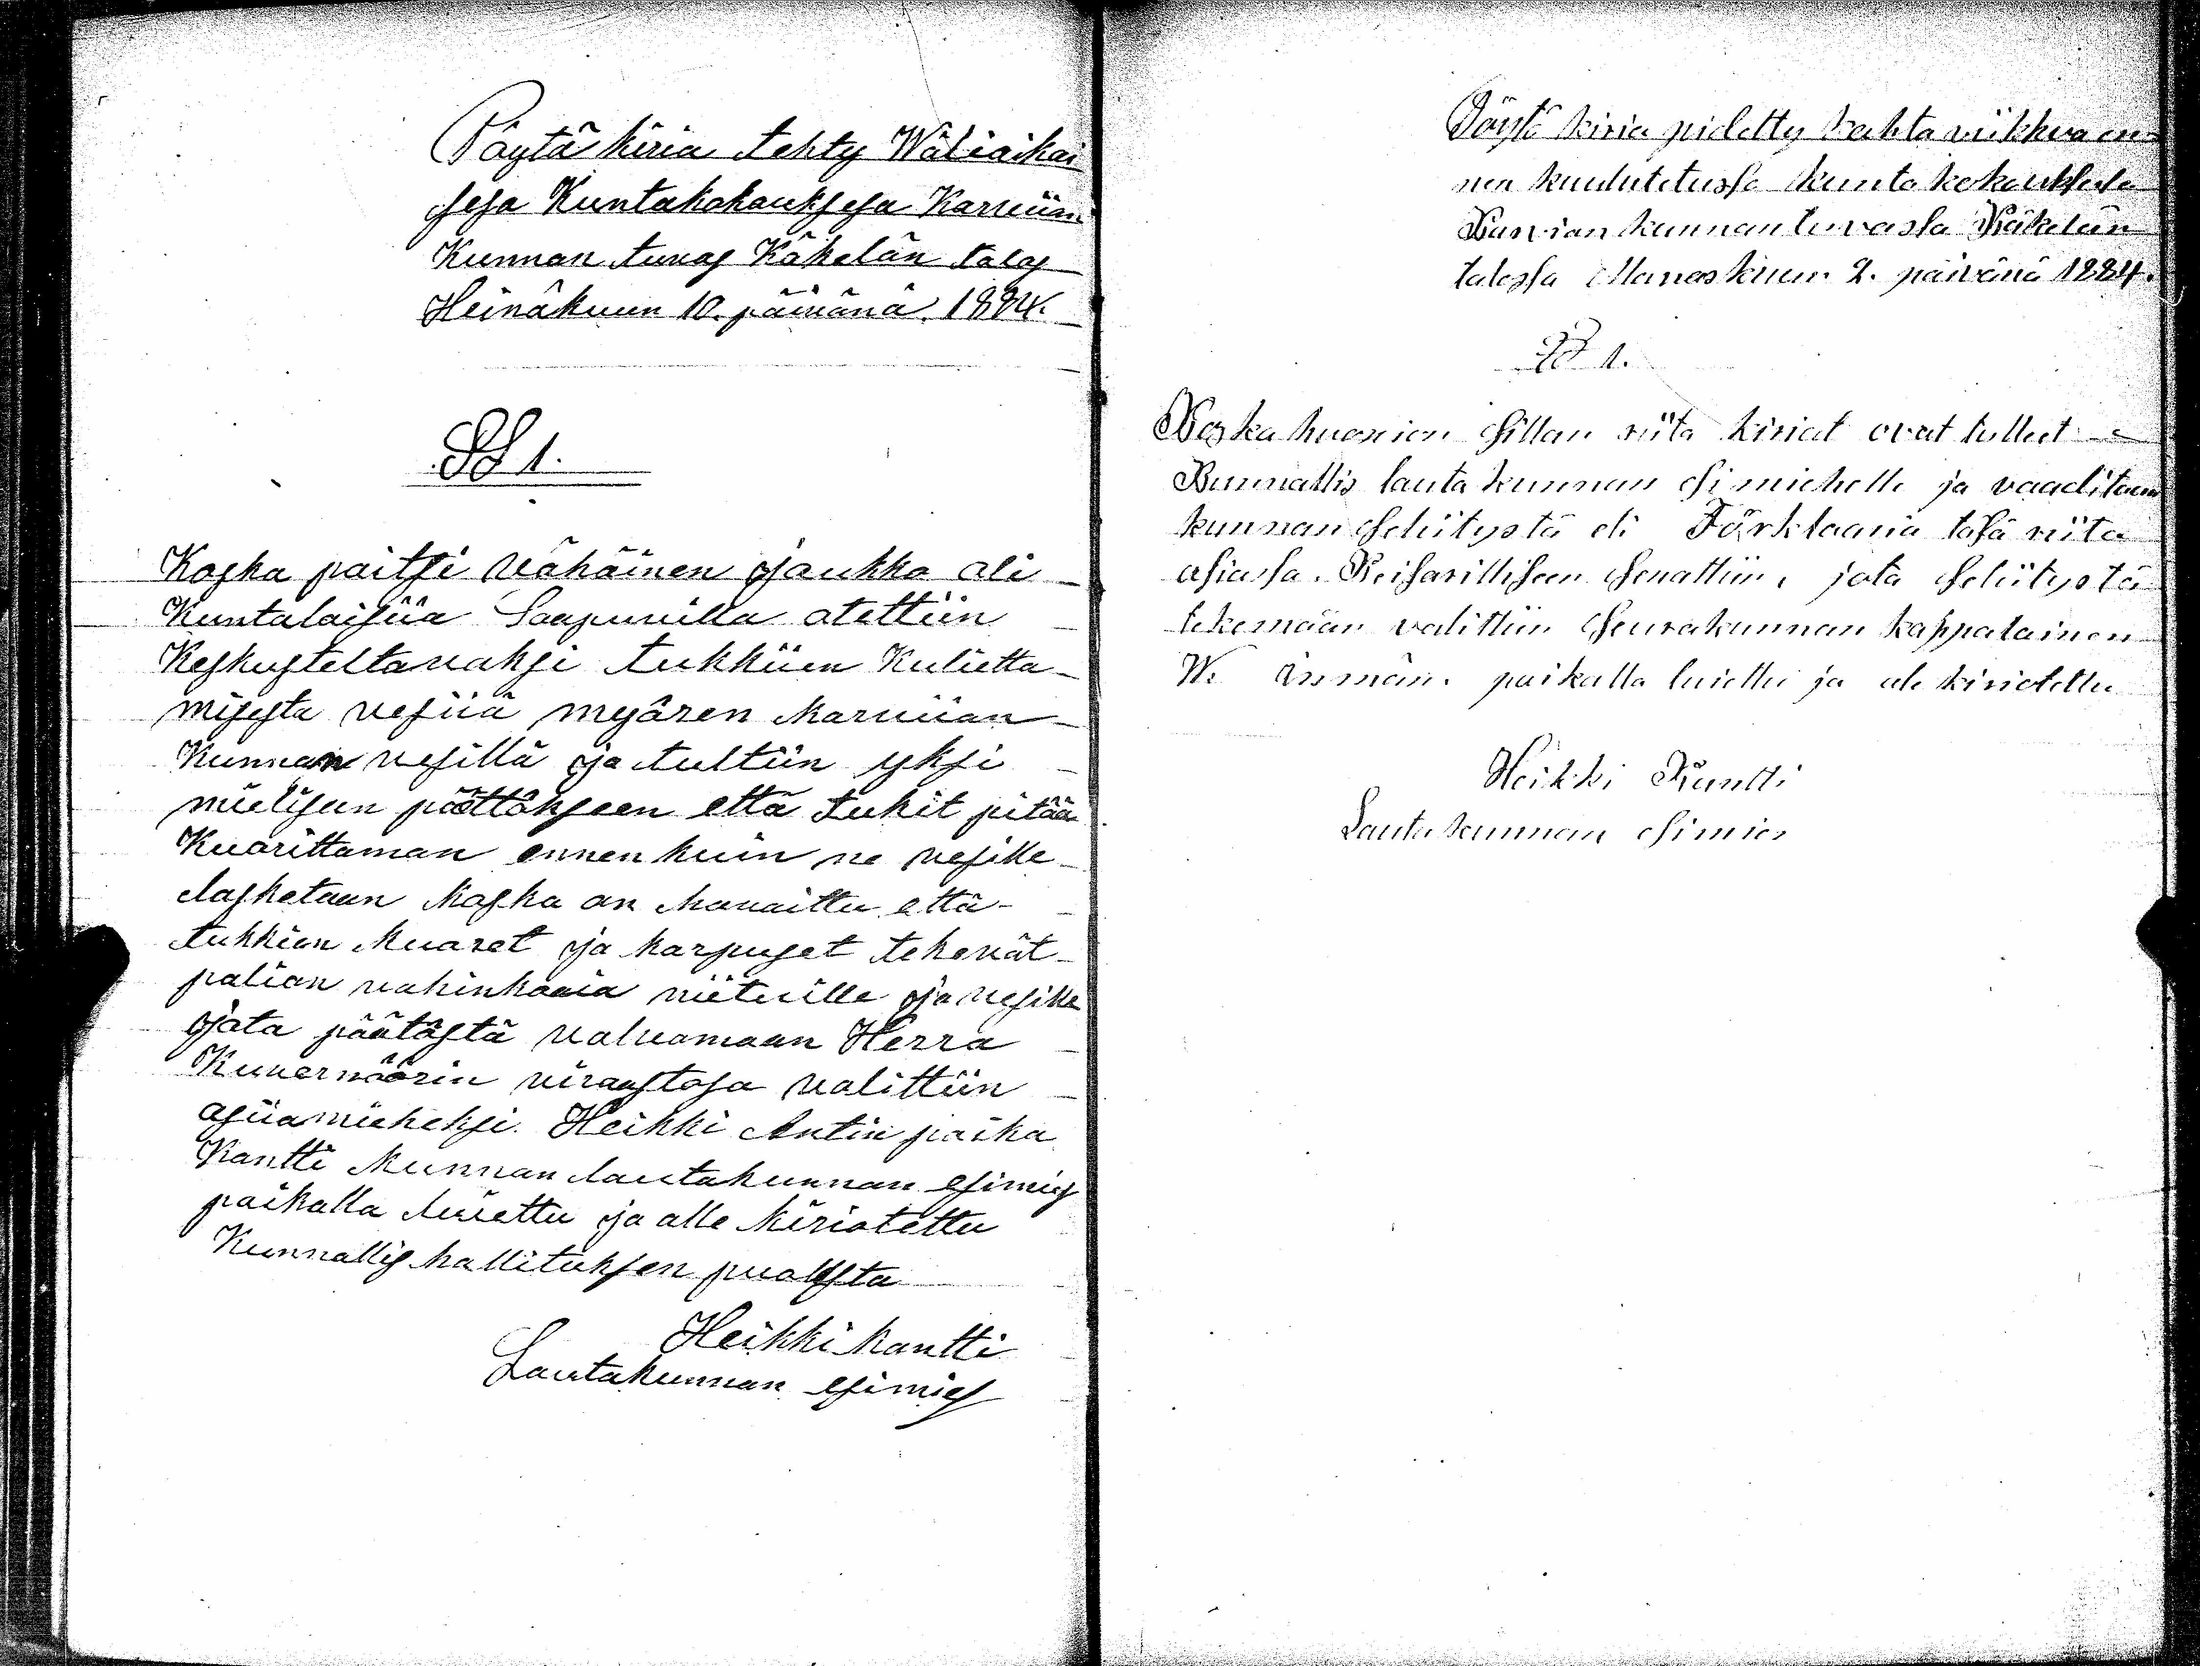 Pöytä kiria tehty Wäliaikai
sesa Kuntakokouksesa Karviian
Kunnan tuvas Käkelän talos
Heinäkuun 10. päivänä. 1884.
§§ 1.
Koska paitsi vähäinen joukko oli
Kuntalaisiia Saapuvilla otettiin
Keskusteltavaksi tukkiien Kulietta
misesta vesiiä myören Karviian
Kunnan vesillä ja tultiin yksi
mielisen päättökseen että tukit pitää
Kuorittaman ennen kuin ne vesille
lasketaan koska on havaittu että
tukkien kuoret ja karpuset tekevät
palion vahinkoaia niituille ja vesille
jota päätöstä valvomaan Herra
Kuvernöörin virastosa valittiin
asiiamieheksi. Heikki Antin poika
Kantti kunnan lautakunnan esimies
paikalla luiettu ja alle kiriotettu
Kunnallis hallituksen puolesta
Heikki kantti
Lautakunnan esimies
Pöytä kiria pidetty kahta viikkoa en
nen kuulutetussa kunta kokouksesa
Karvian kunnan tuvassa Käkelän
talossa Marraskuun 2. päivänä 1884.
§§ 1.
Koska huonion sillan riita kiriat ovat tulleet
Kunnallis lauta kunnan esi miehelle ja vaaditaan
kunnan seliitystä eli Förklaania täsä riita
asiassa. Keisarilliseen senattiin, jota seliitystä
tekemään valittiin seurakunnan kappalainen
W. Inmän. paikalla luiettu ja ale kiriotettu
Heikki Kantti
Lautakunnan esimies